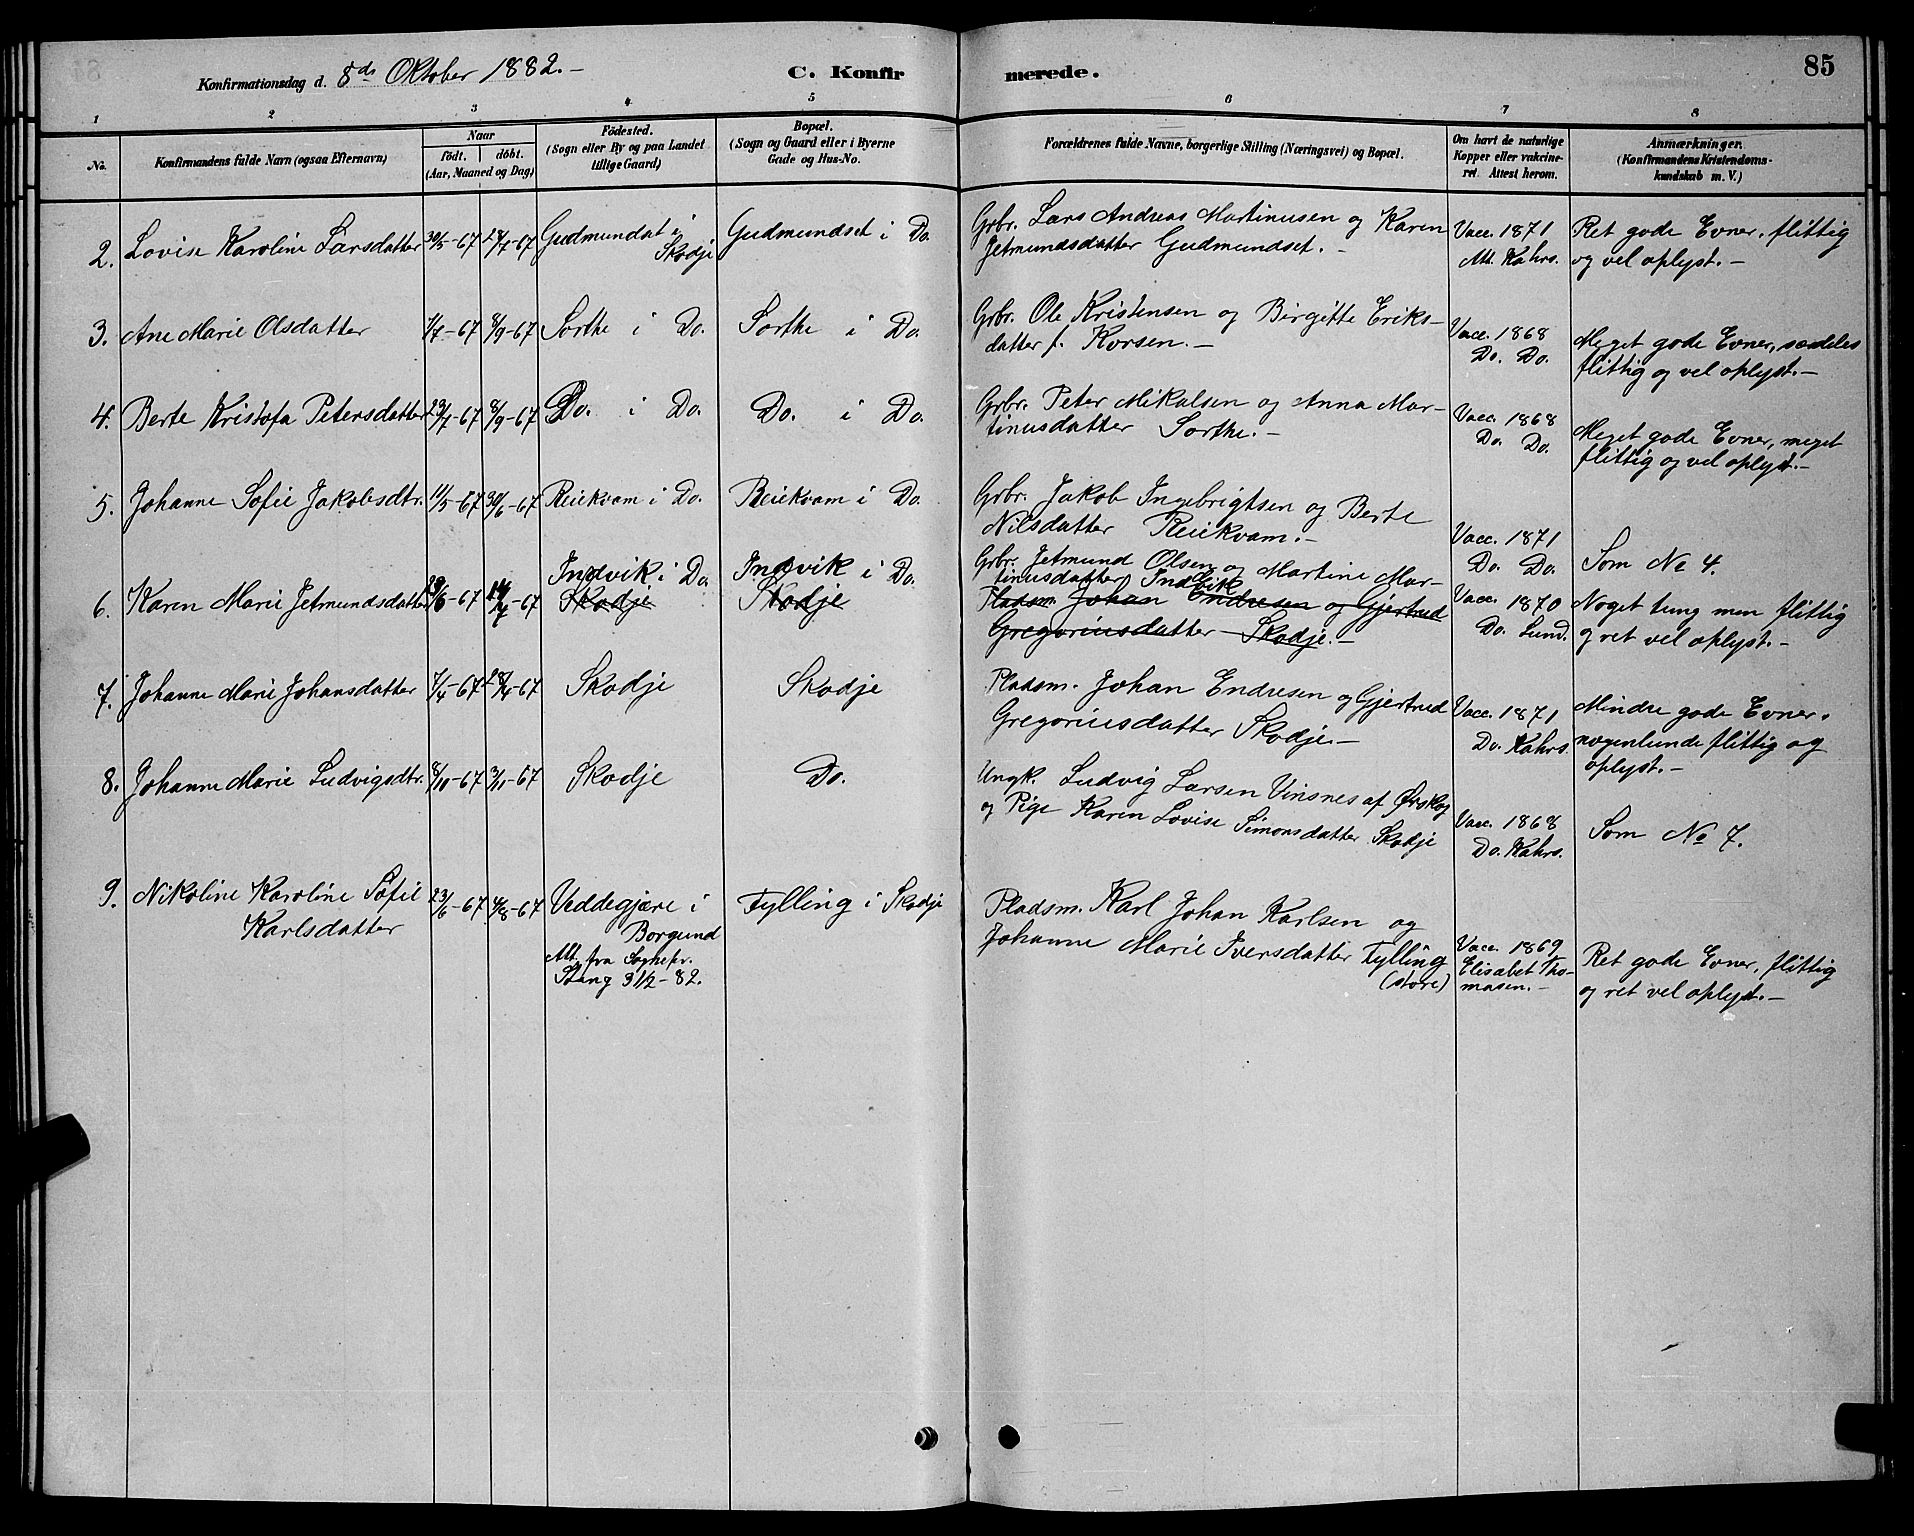 Konfirmationsdag d. 8de Oktober 1882.-
C. Konfirmerede.
85
1 2 3 4 5 6 7 8
No.
Konfirmandens fulde Navn (ogsaa Efternavn)
Naar
födt. döbt.
(Aar, Maaned og Dag)
Födested.
(Sogn eller By og paa Landet
tillige Gaard)
Bopæl.
(Sogn og Gaard eller i Byerne
Gade og Hus-No.
Forældrenes fulde Navne, borgerlige Stilling (Næringsvei) og Bopæl.
Om havt de naturlige
Kopper eller vakcine-
ret. Attest herom.
Anmærkninger.
(Konfirmandens Kristendoms-
kundskab m. V.)
2. Lovise Karoline Larsdatter 30/5-67
Gudmundset i
Skodje
Gudmundset i Do.
Grbr. Lars Andreas Martinusen og Karen
Jetmundsdatter Gudmundset.-
Vacc. 1871
Att. Kahrs.
Ret gode Evner, flittig
og vel oplyst.-
3. Ane Marie Olsdatter 8/9-67
Sorthe i Do.
Sorthe i Do.
Grbr. Ole Kristensen og Birgitte Eriks-
datter f. Korsen.-
Vacc. 1868
Do. Do.
Meget gode Evner, særdeles
flittig og vel oplyst.-
4. Berte Kristofa Petersdatter 8/9-67
Do. i Do.
Do. i Do.
Grbr. Peter Mikalsen og Anna Mar-
tinusdatter Sorthe.-
Vacc. 1868
Do. Do.
Meget gode Evner, meget
flittig og vel oplyst.-
5. Johanne Sofie Jakobsdtr. 11/5-67 30/6-67
Reiekvam i Do.
Reiekvam i Do.
Grbr. Jakob Ingebrigtsen og Berte
Nilsdatter Reiekvam.-
Vacc. 1871
Do. Do.
Som No 4.
6. Karen Marie Jetmundsdatter
Indvik i Do.
Skodje
Indvik i Do.
Skodje
Grbr. Jetmund Olsen og Martine Mar-
tinusdatter Indvik
Pladsm. Johan Endresen og Gjertrud
Gregoriusdatter Skodje.-
Vacc. 1870
Do. Lund.
Noget tung men flittig
og ret vel oplyst.-
7. Johanne Marie Johansdatter 7/4-67 28/4-67
Skodje
Skodje
Pladsm. Johan Endresen og Gjertrud
Gregoriusdatter Skodje.-
Vacc. 1871
Do. Kahrs
Mindre gode Evner.
nogenlunde flittig og
oplyst.-
8. Johanne Marie Ludvigsdtr. 8/10-67 3/11-67
Skodje
Do.
Ungk. Ludvig Larsen Vinsnes af Ørskog
og Pige Karen Lovise Simonsdatter Skodje
Vacc. 1868
Do. Kahrs.
Som No 7.
9. Nikoline Karoline Sofie
Karlsdatter
23/6-67 4/8-67
Veddegjære i
Borgund
Att. fra Sognepr.
Stang 31/2-82.
Fylling i Skodje
Pladsm. Karl Johan Karlsen og
Johanne Marie Iversdatter Fylling
(store)
Vacc. 1869
Elisabet Tho-
masen.-
Ret gode Evner, flittig
og ret vel oplyst.-